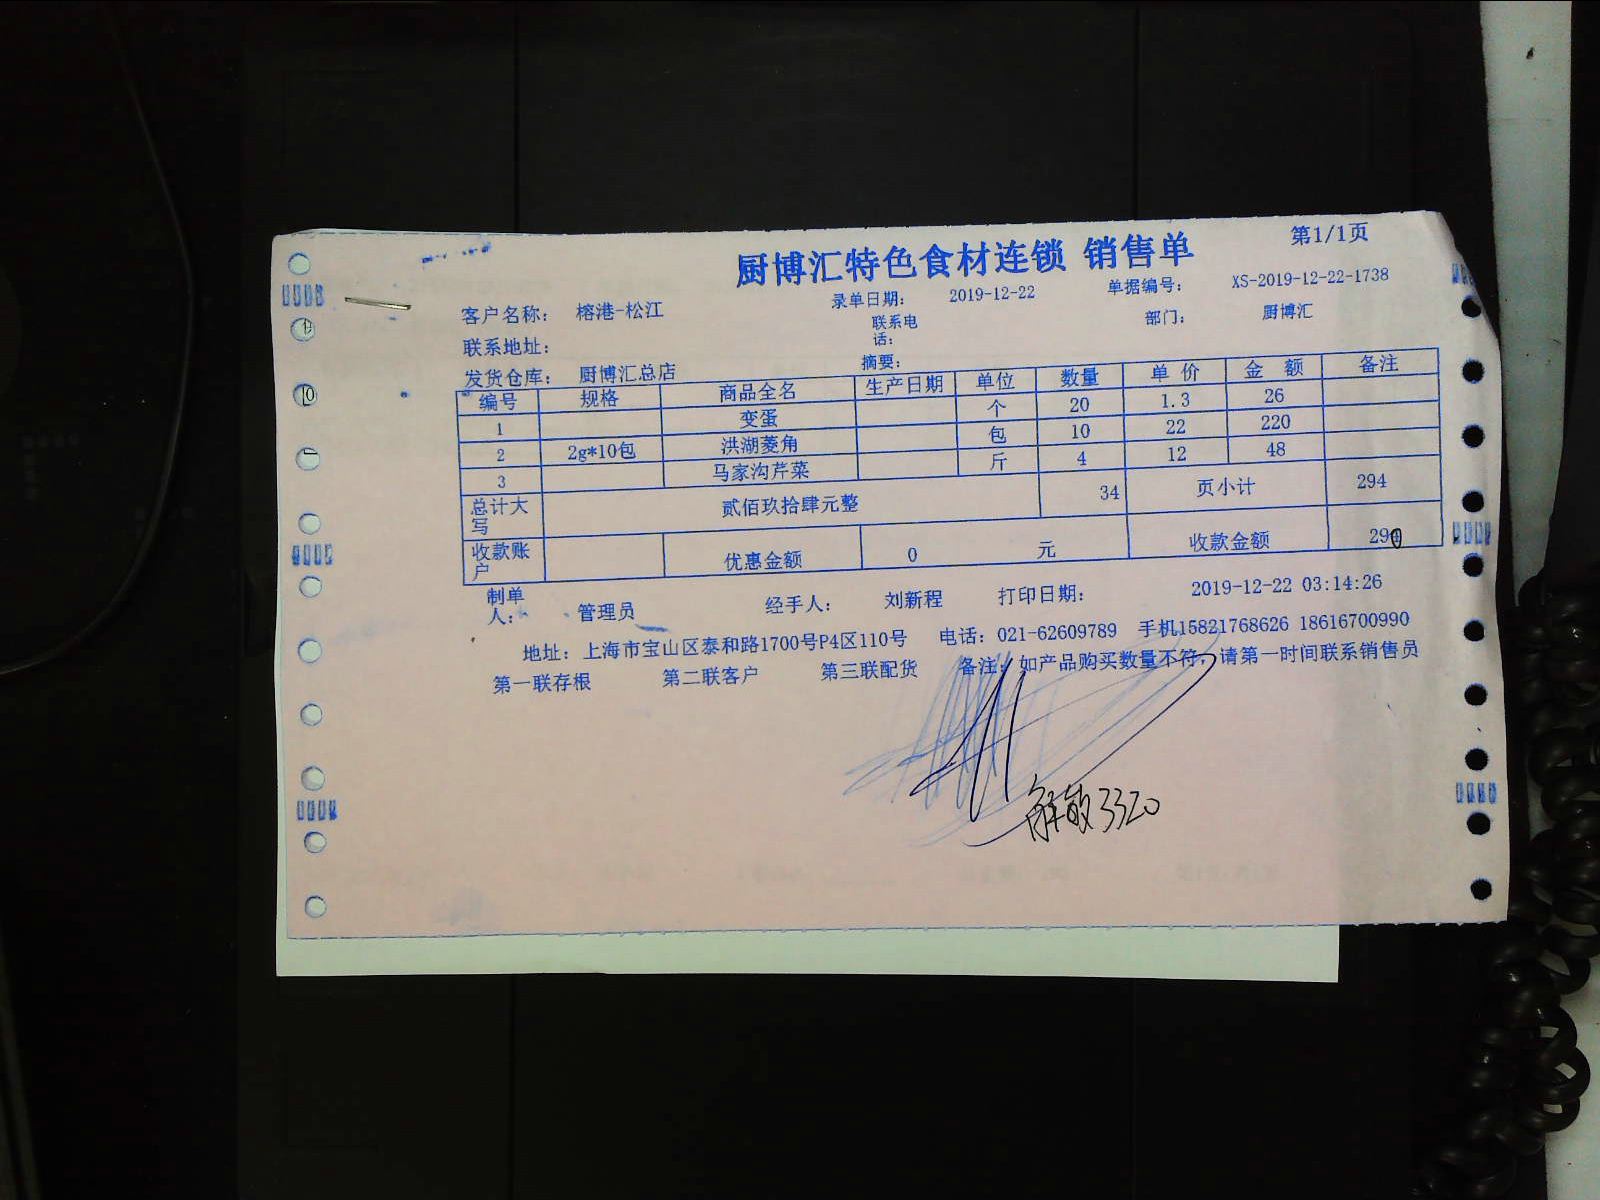 第1/1页
厨博汇特色食材连锁 销售单
客户名称： 榕港-松江 录单日期： 2019-12-22 单据编号： XS-2019-12-22-1738
联系地址： 联系电话： 部门： 厨博汇
发货仓库： 厨博汇总店 摘要：
编号 规格 商品全名 生产日期 单位 数量 单 价 金 额 备注
1 变蛋 个 20 1.3 26
2 2g*10包 洪湖菱角 包 10 22 220
3 马家沟芹菜 斤 4 12 48
总计大写 贰佰玖拾肆元整 34 页小计 294
收款账户 优惠金额 0 元 收款金额 290
制单人： 管理员 经手人： 刘新程 打印日期： 2019-12-22 03:14:26
地址：上海市宝山区泰和路1700号P4区110号 电话：021-62609789 手机15821768626 18616700990
第一联存根 第二联客户 第三联配货 备注：如产品购买数量不符，请第一时间联系销售员
3320